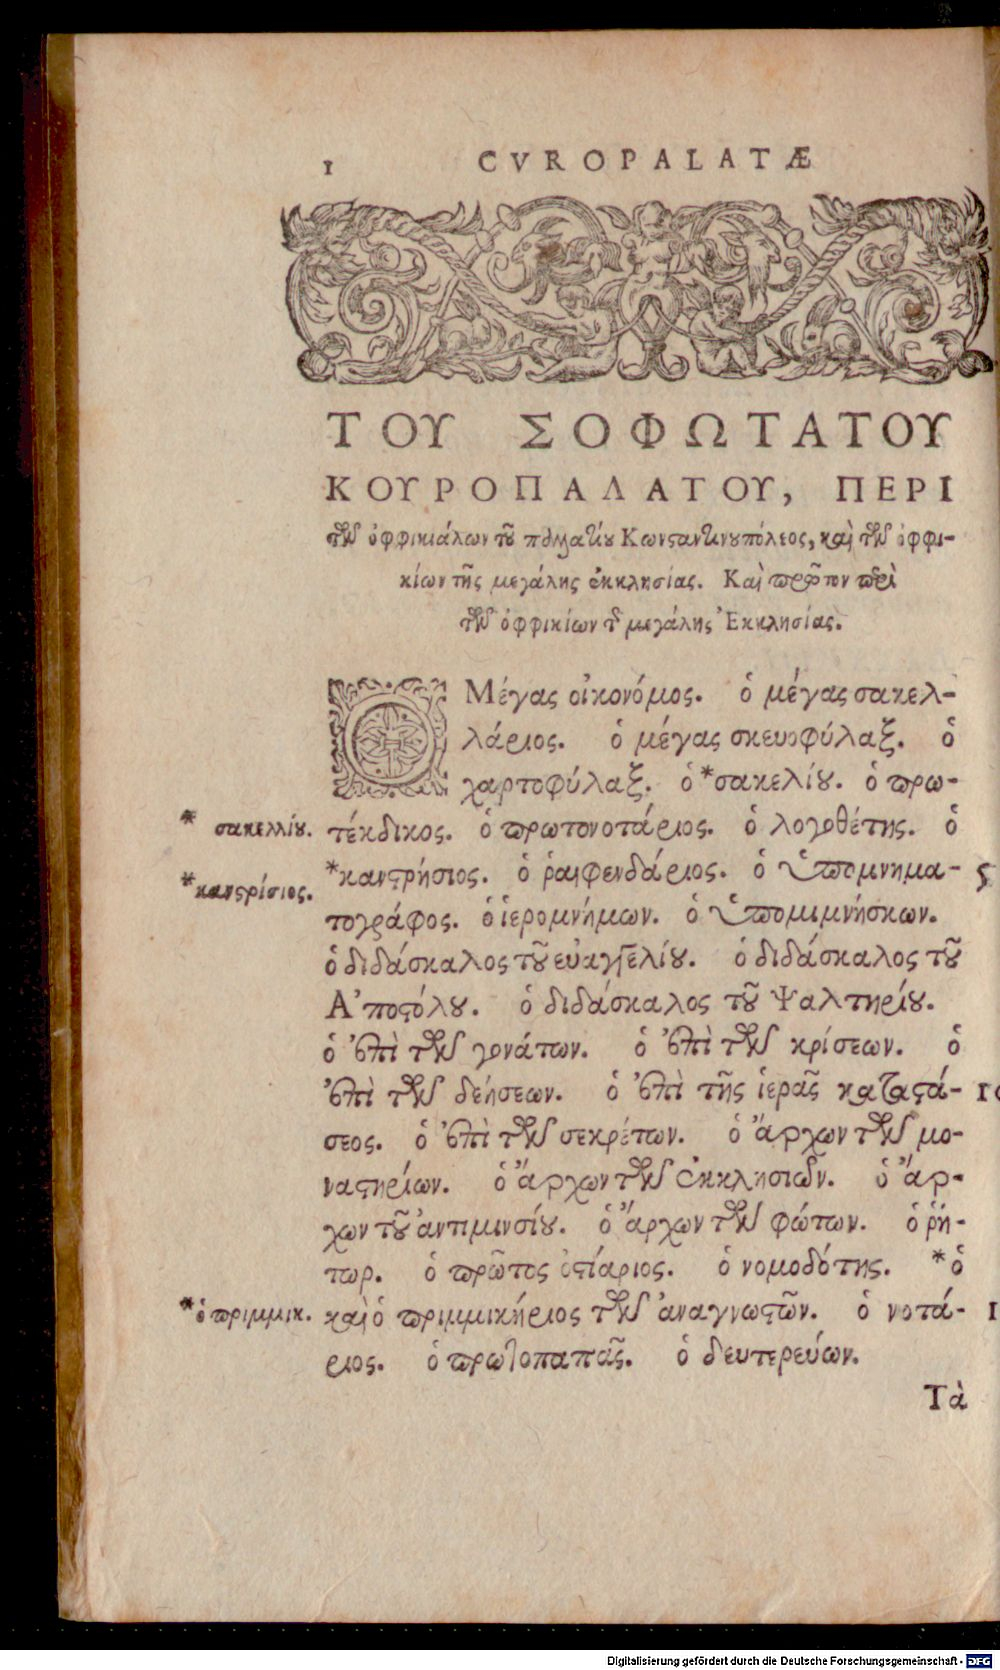 1 CVROPALATÆ
ΤΟΥ ΣΟΦΩΤΑΤΟΥ
ΚΟΥΡΟΠΑΛΑΤΟΥ, ΠΕΡΙ
τῶν ὀφφικιάλων τοῦ παλατίου Κωνσταντινουπόλεος, καὶ τῶν ὀφφι-
κίων τῆς μεγάλης ἐκκλησίας. Καὶ πρῶτον περὶ
τῶν ὀφφικίων τῆς μεγάλης Ἐκκλησίας.
Ὁ Μέγας οἰκονόμος. ὁ μέγας σακελ-
λάριος. ὁ μέγας σκευοφύλαξ. ὁ
χαρτοφύλαξ. ὁ *σακελίου. ὁ πρω-
* σακελλίου.
τέκδικος. ὁ πρωτονοτάριος. ὁ λογοθέτης. ὁ
*κανστρίσιος.
*κανστρήσιος. ὁ ῥαιφενδάριος. ὁ ὑπομνημα- 5
τογράφος. ὁ ἱερομνήμων. ὁ ὑπομιμνήσκων.
ὁ διδάσκαλος τοῦ εὐαγγελίου. ὁ διδάσκαλος τοῦ
Ἀποστόλου. ὁ διδάσκαλος τοῦ Ψαλτηρίου.
ὁ ἐπὶ τῶν γονάτων. ὁ ἐπὶ τῶν κρίσεων. ὁ
ἐπὶ τῶν δεήσεων. ὁ ἐπὶ τῆς ἱερᾶς καταστά- 10
σεος. ὁ ἐπὶ τῶν σεκρέτων. ὁ ἄρχων τῶν μο-
ναστηρίων. ὁ ἄρχων τῶν ἐκκλησιῶν. ὁ ἄρ-
χων τοῦ ἀντιμινσίου. ὁ ἄρχων τῶν φώτων. ὁ ῥή-
τωρ. ὁ πρῶτος ὀστίαριος. ὁ νομοδότης. *ὁ
*ὁ πριμμικ.
καὶ ὁ πριμμικήριος τῶν ἀναγνωστῶν. ὁ νοτά- 1
ριος. ὁ πρωτοπαπᾶς. ὁ δευτερεύων.
Τὰ
Digitalisierung gefördert durch die Deutsche Forschungsgemeinschaft - DFG